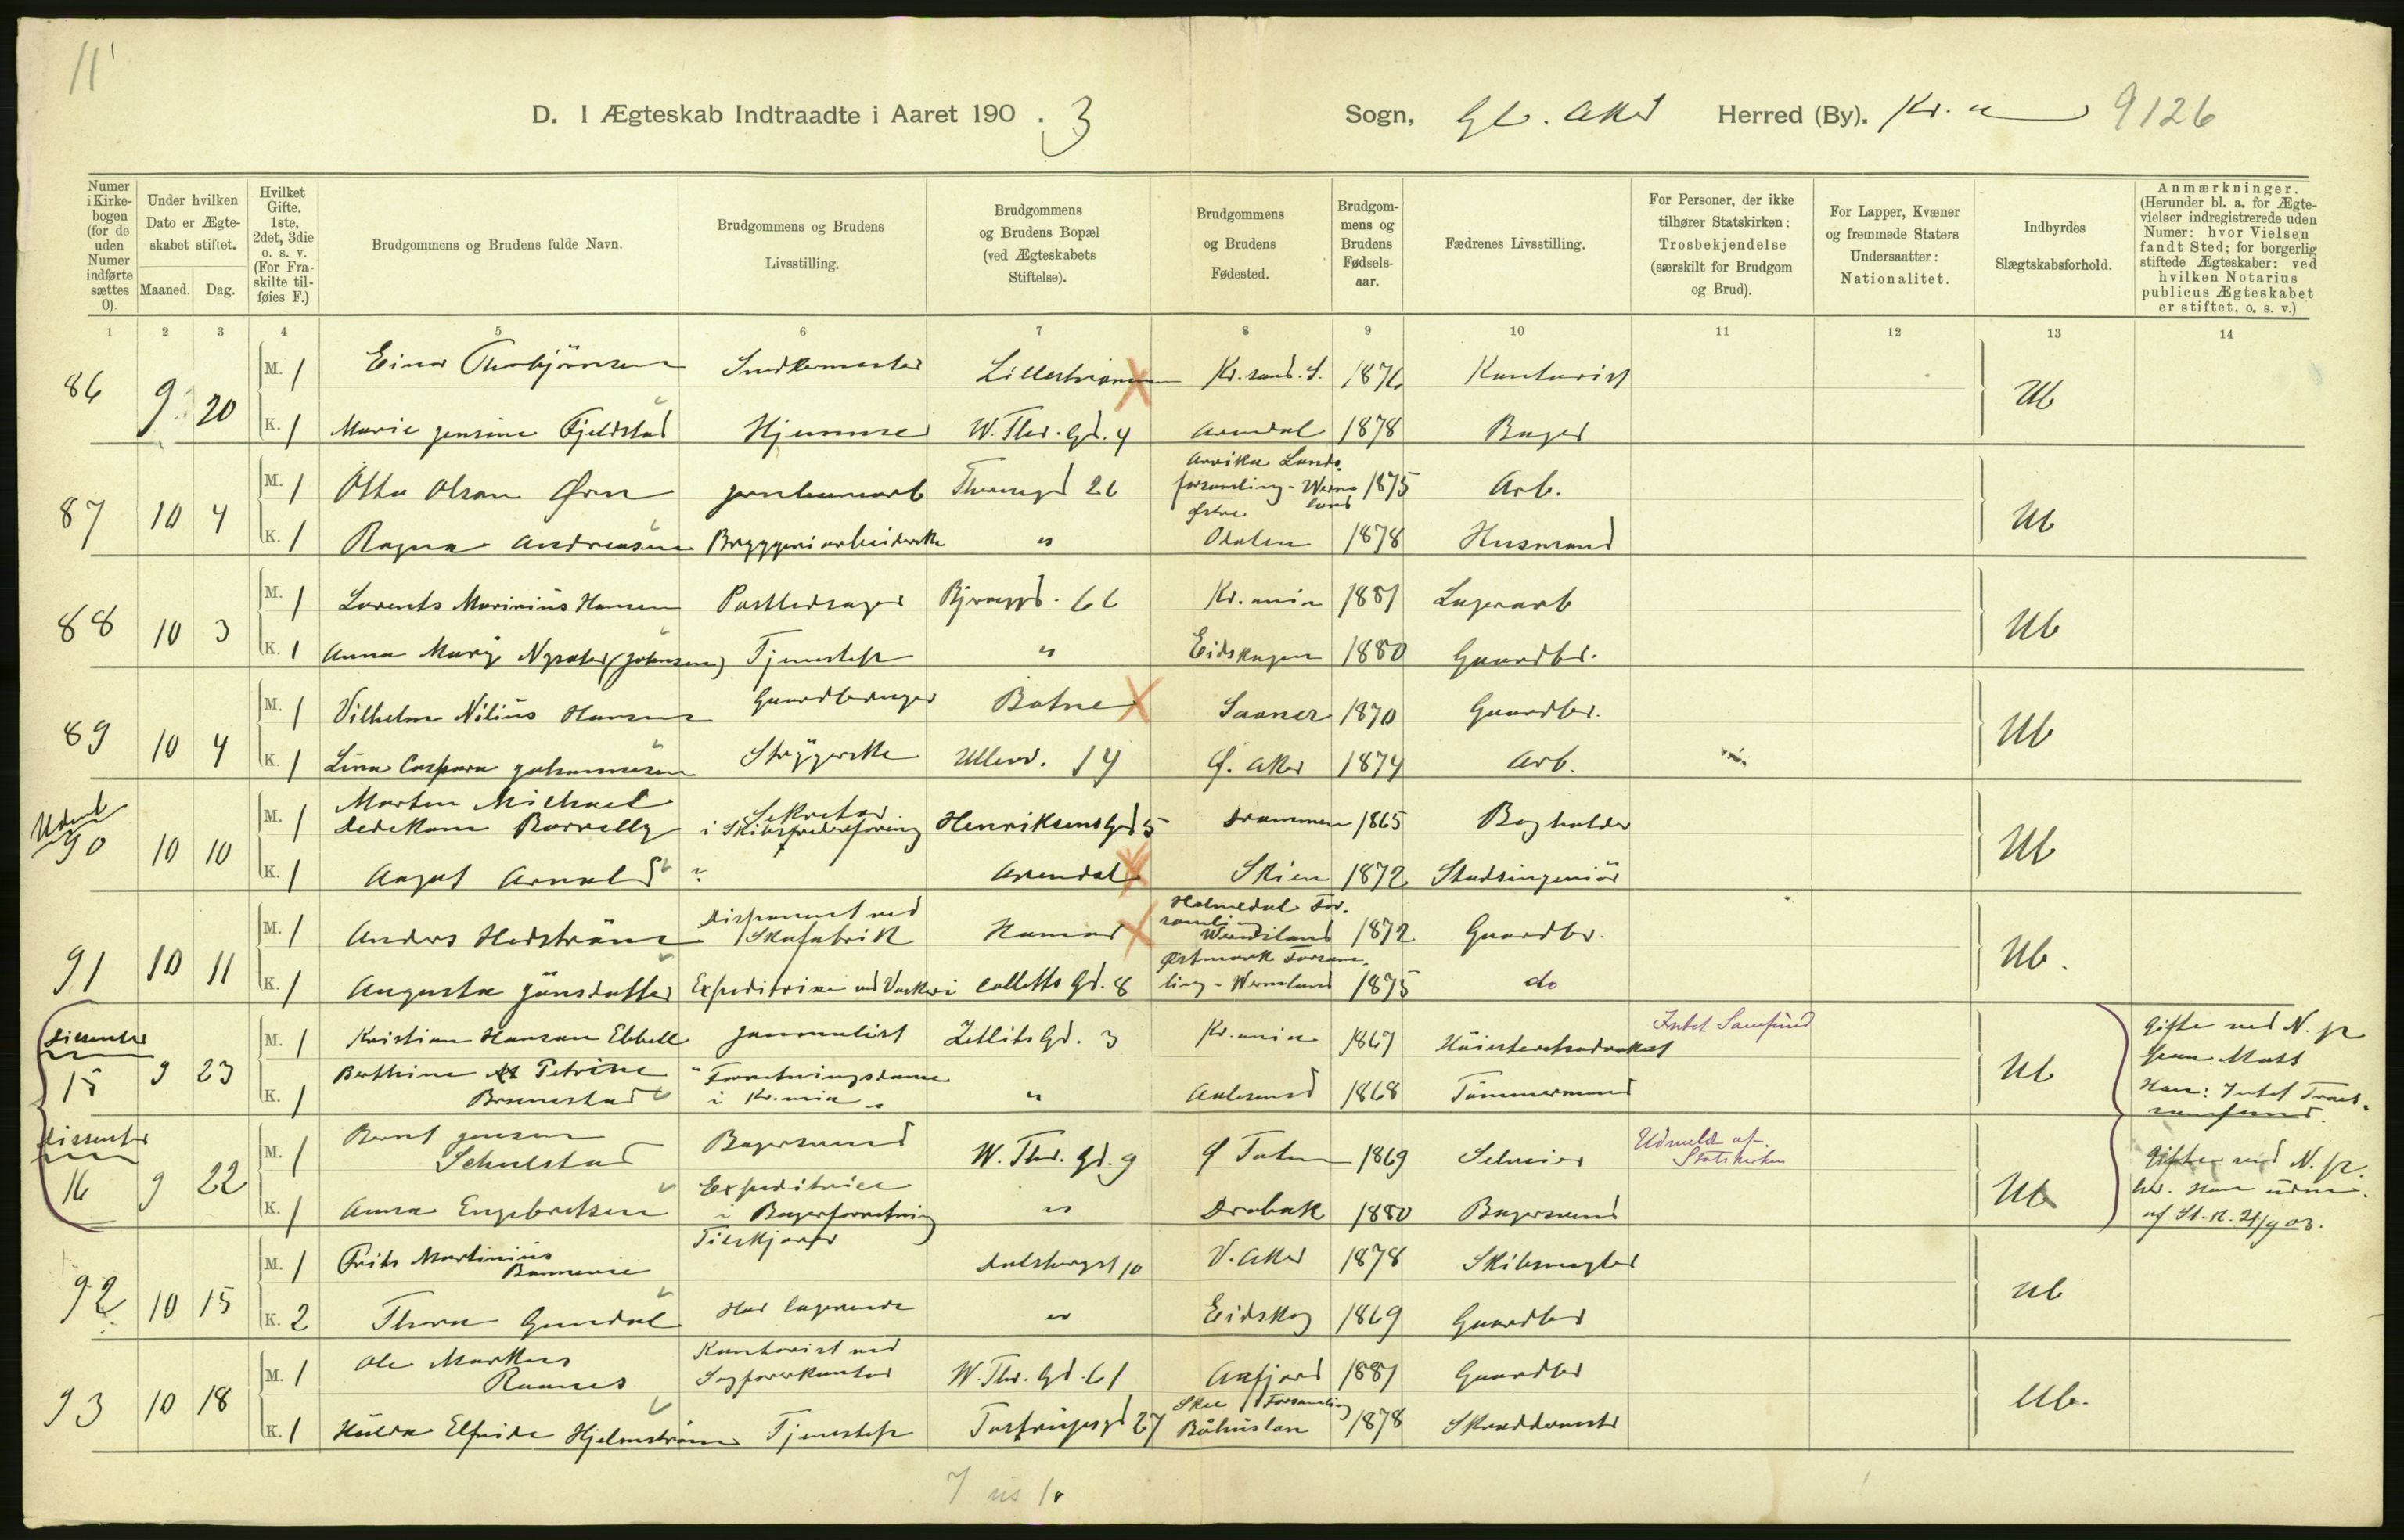 11
D. I Ægteskab Indtraadte i Aaret 190 . 3 Sogn, Gl. Aker Herred (By). Kr. a 9126
Numer i Kirkebogen (for de uden Numer indførte sættes 0).
Under hvilken Dato er Ægteskabet stiftet.
Maaned. Dag.
Hvilket Gifte. 1ste, 2det, 3die o. s. v. (For Fraskilte tilføies F.)
Brudgommens og Brudens fulde Navn.
Brudgommens og Brudens Livsstilling.
Brudgommens og Brudens Bopæl (ved Ægteskabets Stiftelse).
Brudgommens og Brudens Fødested.
Brudgommens og Brudens Fødselsaar.
Fædrenes Livsstilling.
For Personer, der ikke tilhører Statskirken: Trosbekjendelse (særskilt for Brudgom og Brud).
For Lapper, Kvæner og fremmede Staters Undersaatter: Nationalitet.
Indbyrdes Slægtskabsforhold.
Anmærkninger. (Herunder bl. a. for Ægtevielser indregistrerede uden Numer: hvor Vielsen fandt Sted; for borgerlig stiftede Ægteskaber: ved hvilken Notarius publicus Ægteskabet er stiftet, o. s. v.)
1 2 3 4 5 6 7 8 9 10 11 12 13 14
86 9 20 M. 1 Einar Thorbjörnsen Snedkermester Lillestrømmen Kr.sand. S. 1876 Kontorist Ub
K. 1 Marie Jensine Fjeldstad Hjemme W. Thr. Gd. 4 Arendal 1878 Bager
87 10 4 M. 1 Otto Olsen Ørn Jernbanearb Thorvaldsgd 26 Arvika Lands forsamling - Wermland 1875 Arb. Ub
K. 1 Ragna Andreasen Bryggeriarbeiderske " Østre Odalen 1878 Husmand
88 10 3 M. 1 Lorents Marinius Hansen Postledsager Bjerregd. 66 Kr.ania 1881 Lagerarb Ub
K. 1 Anna Marij Nysater (Johnsen) Tjenestep " Eidskogen 1880 Gaardbr.
89 10 4 M. 1 Vilhelm Nilius Hansen Gaardbruger Botne Saaner 1870 Gaardbr. Ub
K. 1 Lina Caspara Johannesen Strygerske Ullevv. 14 Ø. Aker 1874 Arb.
90 10 10 M. 1 Morten Michael Sekretær i Skibsrederforening Henriksensgd 5 Drammen 1865 Bogholder Ub
K. 1 Aagot Arnold ? Arendal Skien 1872 Stadsingeniör
91 10 11 M. 1 Anders Hedström Disponent ved Skofabrik Hamar Holmedal Forsamling Wermland 1872 Gaardbr. Ub.
K. 1 Augusta Jönsdatter Expeditrice ved Vaskeri Colletts Gd. 8 Østmark Forsamling - Wermland 1875 do
Dissenter
15 9 23 M. 1 Kristian Hansen Ebbell Journalist Zetlitz Gd. 3 Kr.ania 1867 Höiesteretsadvokat Intet Samfund Ub Gifte ved N. p
K. 1 Berthine Petrine Brunestad "Forretningsdame i Kr.ania" " Aalesund 1868 Tömmermand Han: Intet Tros-
samfund.
Dissenter
16 9 22 M. 1 Bernt Jensen Schulstad Bagersvend W. Thr. Gd. 9 Ø Toten 1869 Selveier Udmeldt af Statskirken Ub Gifte ved N. p.
K. 1 Anna Engebretsen Expeditrice i Bagerforretning " Drøbak 1880 Bagersvend
af St. K. 21/9 03.
92 10 15 M. 1 Frits Martinius Dalsbergst 10 V. Aker 1878 Skibsmægler Ub
K. 2 Thora Gundal " Eidskog 1869 Gaardbr
93 10 18 M. 1 Ole Markus Raanes Kontorist ved Sagførerkontor W. Thr. Gd. 61 Aafjord 1881 Gaardbr Ub.
K. 1 Hulda Elfrida Hjelmström Tjenestep Toftesgd 27 Skee Forsamling Båhuslän 1878 Skræddermester
7 us 1.